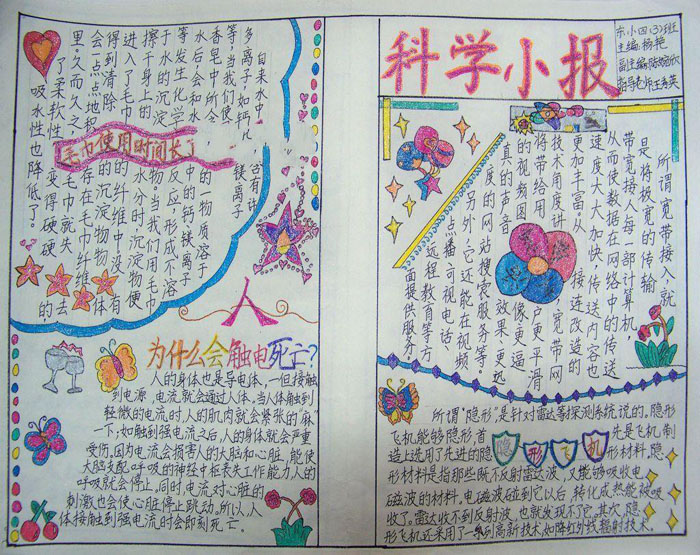 科学小报
东小四(3)班
主编:杨艳
副主编:陈婉欣
指导老师:王秀英
所谓宽带接入,就
是将极宽的传输
带宽接入每一部计算机,
从而使数据在网络中的传送
速度大大加快,传送内容也
更加丰富。从接连改造的
技术角度讲,
将带给用户更平滑
的视频图像更逼
真的声音效果更远
度的网站搜索服务等,
另外,它还能在视频
点播可视电话,
远程教育等方
面提供服务。
所谓“隐形”是针对雷达等探测系统说的。隐形
飞机能够隐形,首先是飞机制
造上选用了先进的隐形材料,隐
隐形飞机
形材料是指那些既不反射雷达波,又能够吸收电
磁波的材料,电磁波碰到它以后,转化成热能被吸
收了。雷达收不到反射波,也就发现不了它,其次,隐
形飞机还采用了一系列高新技术,如降红外线辐射技术。
毛巾使用时间长了
自来水中含有许
多离子,如钙镁离子
等,当我们使
香皂中所含的物质溶于
水后会和水中的钙镁离子
等发生化学反应,形成不溶
于水的沉淀物。当我们用毛巾
擦干身上的水分时,沉淀物便
进入了毛巾的纤维中没有
得到清除的沉淀物物体
会一点点地积存在毛巾纤维的
里,久而久之,毛巾就失去
了柔软性,变得硬硬
吸水性也降低了。
人
为什么会触电死亡?
人的身体也是导电体,一但接触
到电源,电流就会通过人体,当人体触到
轻微的电流时,人的肌肉就会紧张的“麻”
一下;如触到强电流之后,人的身体就会严重
受伤,因为电流会损害人的大脑和心脏,能使
大脑支配呼吸的神经中枢丧失工作能力,人的
呼吸就会停止,同时,电流对心脏的
刺激也会使心脏停止跳动。所以,人
体接触到强电流时会即刻死亡。